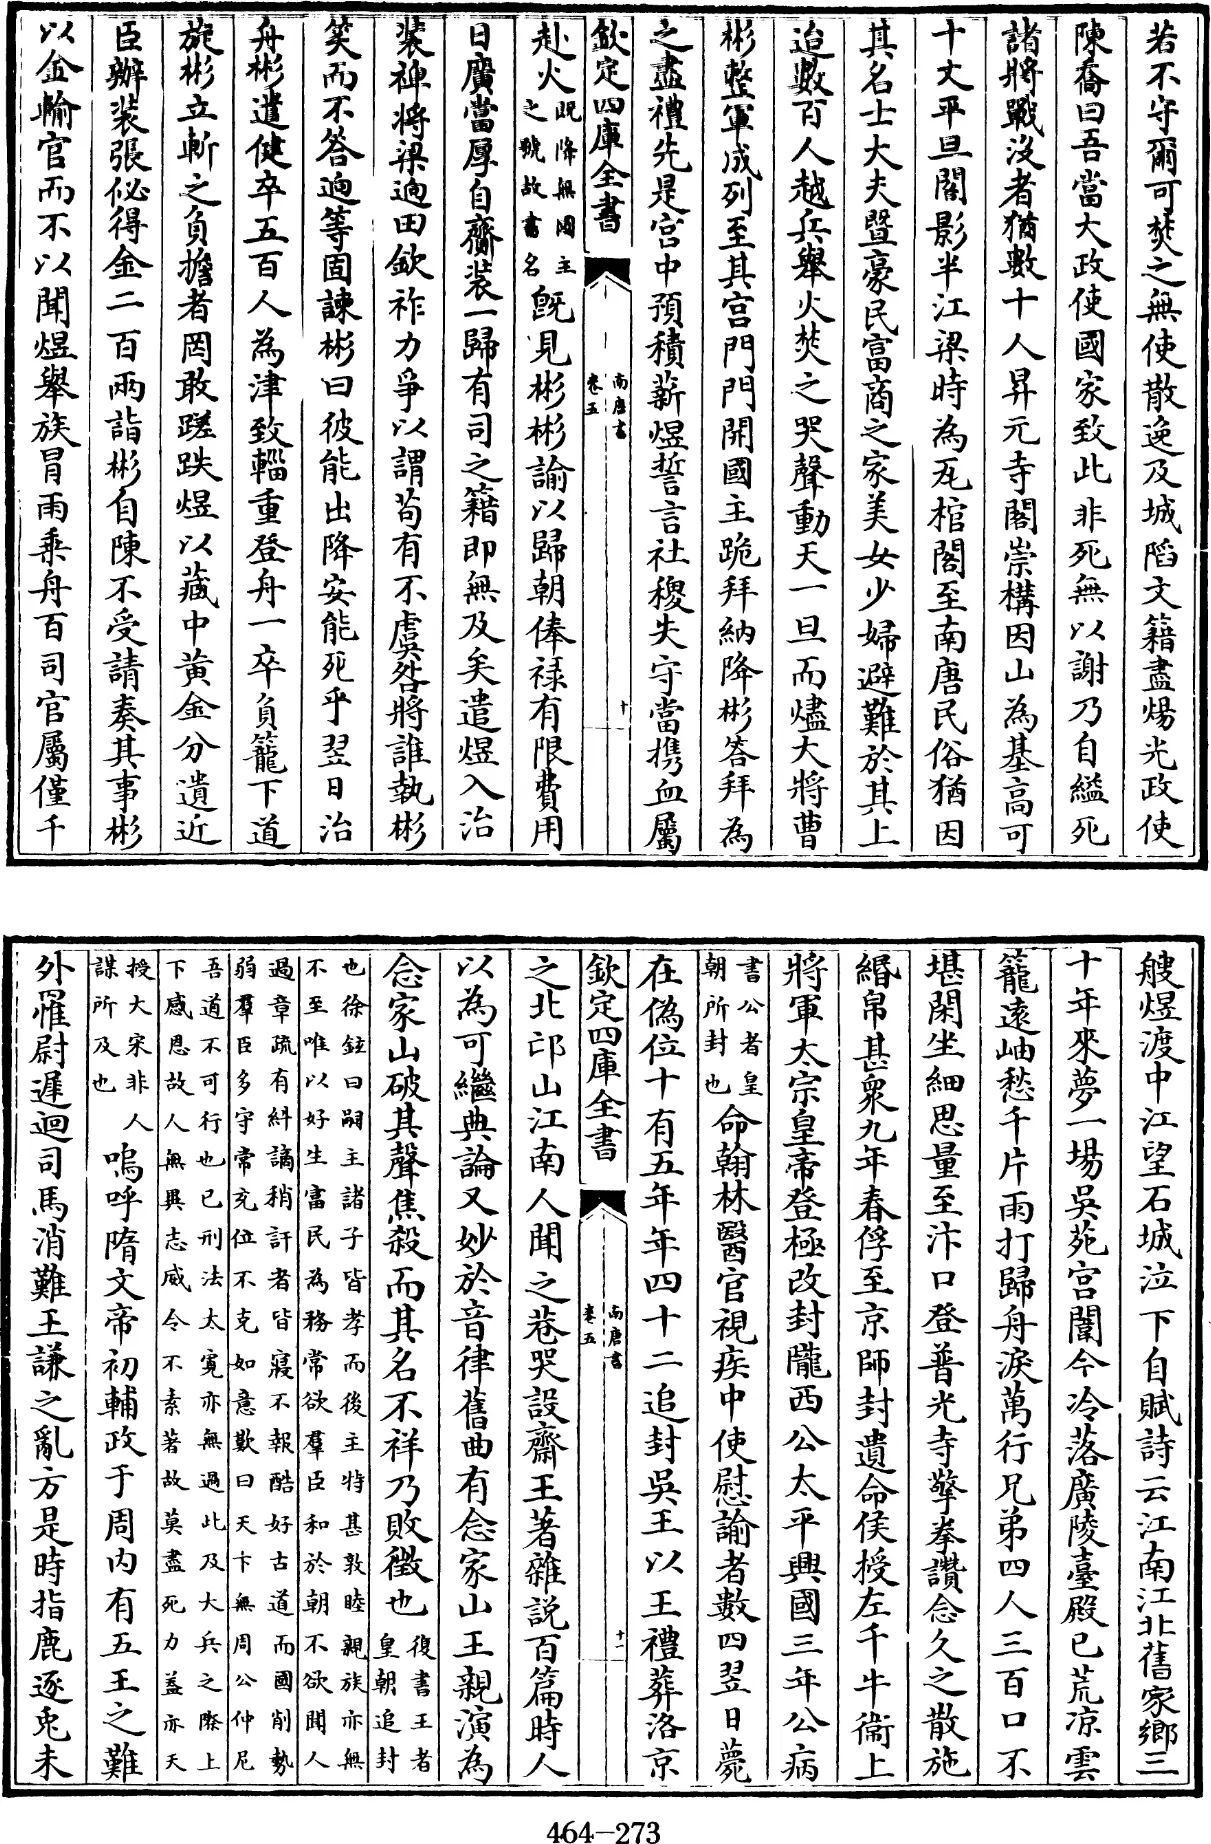 若不守爾可焚之無使散逸及城䧟文籍盡煬光政使
陳喬曰吾當大政使國家致此非死無以謝乃自縊死
諸將戰沒者猶數十人昇元寺閣崇構因山為基髙可
十丈平旦閣影半江梁時為瓦棺閣至南唐民俗猶因
其名士大夫暨豪民富商之家美女少婦避難於其上
迨數百人越兵舉火焚之哭聲動天一旦而燼大將曹
彬整軍成列至其宫門門開國主跪拜納降彬答拜為
之盡禮先是宫中預積薪煜誓言社稷失守當擕血屬
欽定四庫全書
南唐書
卷五
十
赴火既降無國主
之號故書名既見彬彬諭以歸朝俸禄有限費用
日廣當厚自齎装一歸有司之籍即無及矣遣煜入治
装裨将梁逈田欽祚力爭以謂茍有不虞咎將誰執彬
笑而不答逈等固諫彬曰彼能出降安能死乎翌日治
舟彬遣健卒五百人為津致輜重登舟一卒負籠下道
旋彬立斬之負擔者罔敢蹉跌煜以藏中黄金分遺近
臣辦装張佖得金二百兩詣彬自陳不受請奏其事彬
以金輸官而不以聞煜舉族冒雨乘舟百司官屬僅千
艘煜渡中江望石城泣下自賦詩云江南江北舊家鄉三
十年來夢一場吳苑宫闈今冷落廣陵臺殿已荒凉雲
籠逺岫愁千片雨打歸舟淚萬行兄弟四人三百口不
堪閑坐細思量至汴口登普光寺擎拳讚念久之散施
緡帛甚衆九年春俘至京師封遺命侯授左千牛衞上
將軍太宗皇帝登極改封隴西公太平興國三年公病
書公者皇
朝所封也命翰林醫官視疾中使慰諭者數四翌日薨
在偽位十有五年年四十二追封吳王以王禮葬洛京
欽定四庫全書
南唐書
卷五
十一
之北邙山江南人聞之巷哭設齋王著雜說百篇時人
以為可繼典論又妙於音律舊曲有念家山王親演為
念家山破其聲焦殺而其名不祥乃敗徵也復書王者
皇朝追封
也徐鉉曰嗣主諸子皆孝而後主特甚敦睦親族亦無
不至唯以好生富民為務常欲羣臣和於朝不欲聞人
過章疏有糾謫稍訐者皆寢不報酷好古道而國削勢
弱羣臣多守常充位不克如意歎曰天下無周公仲尼
吾道不可行也已刑法太寛亦無過此及大兵之際上
下感恩故人無異志威令不素著故莫盡死力盖亦天
授大宋非人人
謀所及也嗚呼隋文帝初輔政于周内有五王之難
外罹尉遲迴司馬消難王謙之亂方是時指鹿逐兎未
464-273